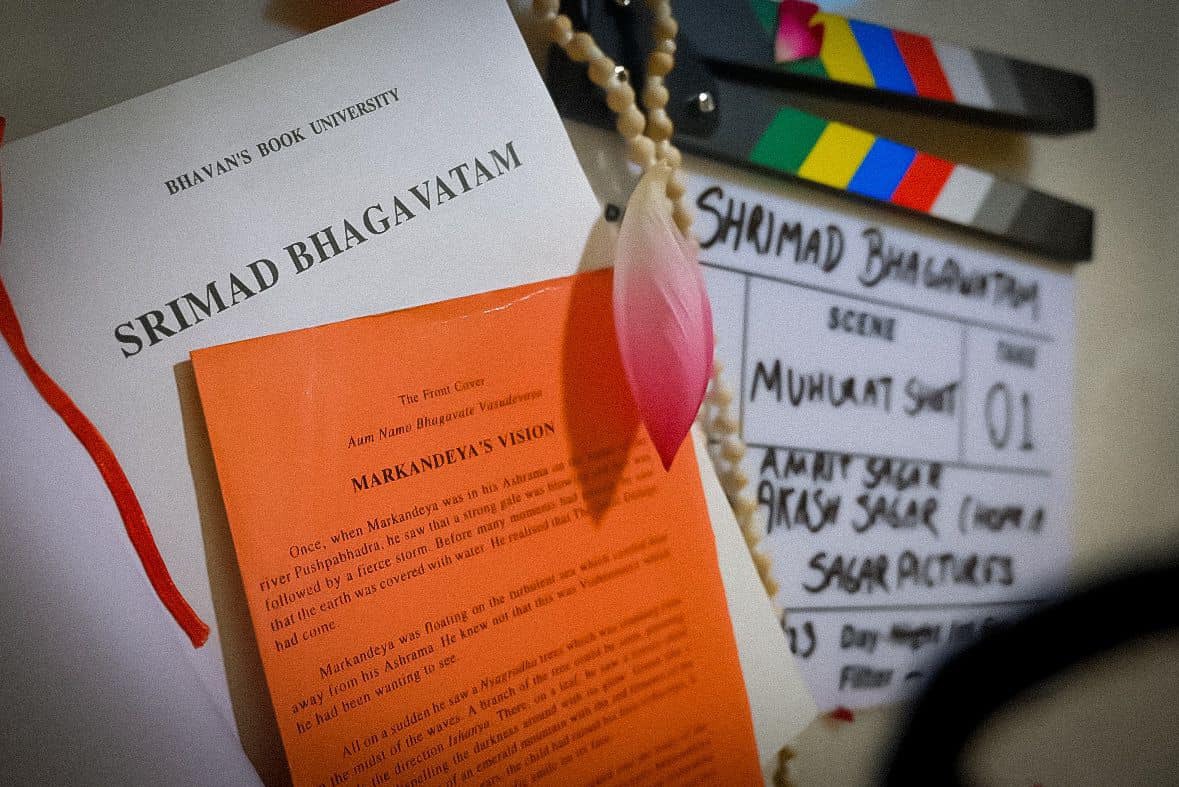 BHAVAN'S BOOK UNIVERSITY
SRIMAD BHAGAVATAM
The Front Cover
Aum Namo Bhagavate Vasudevaya
MARKANDEYA'S VISION
Once, when Markandeya was in his Ashrama on
river Pushpabhadra, he saw that a strong gale was
followed by a fierce storm. Before many moments had
that the earth was covered with water. He realised that
had come
Markandeya was floating on the turbulent sea which
away from his Ashrama. He knew not that this was Vishnumaya which
he had been wanting to see.
All on a sudden he saw a Nyagrodha tree which was
the midst of the waves. A branch of the tree could be seen
the direction Ishanya. There, on a leaf, he saw a
spelling the darkness around with
of an emerald mountain with the red
the child had
SHRIMAD BHAGAWATAM
SCENE
TAKE
MUHURAT SHOT
01
AMRIT SAGAR
AKASH SAGAR
SAGAR PICTURES
Day-Night Int
Filter